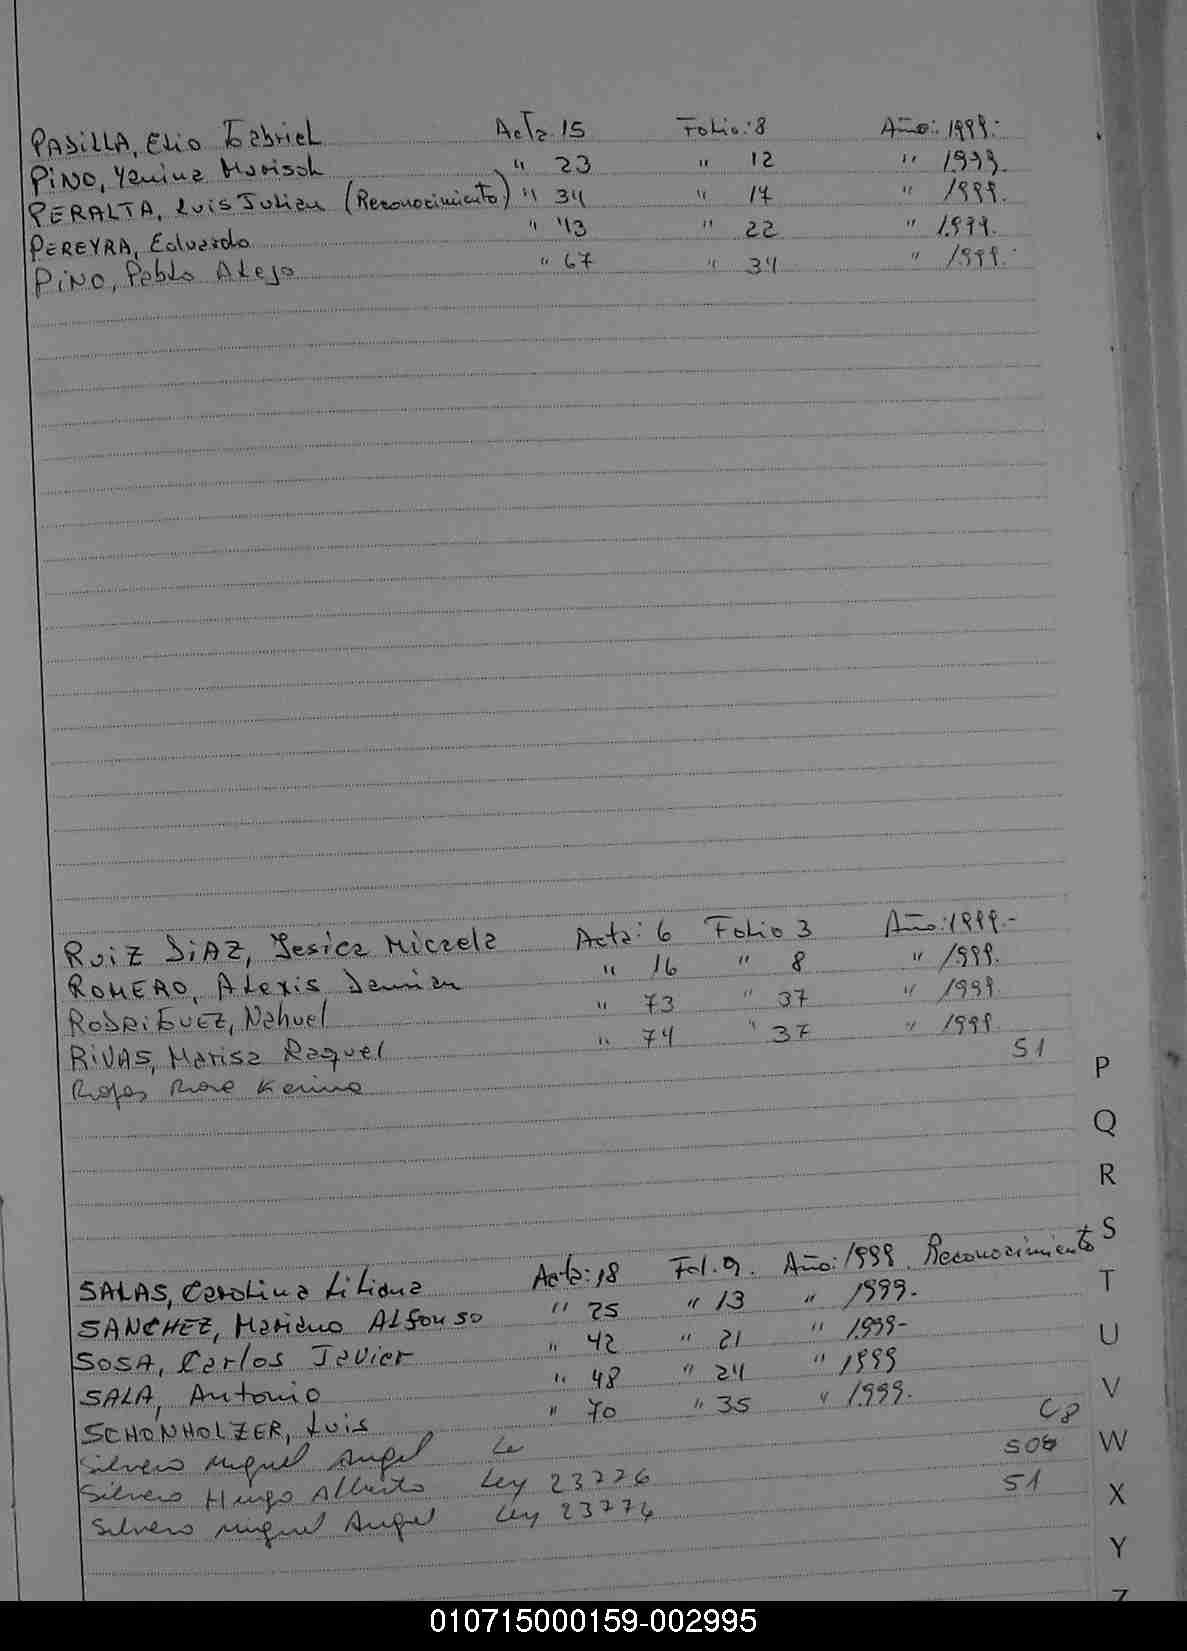 PADILLA, Elio Gabriel Acta. 15 Folio: 8 Año: 1999.
PiNO, Yanina Marisol " 23 " 12 " 1.999.
PERALTA, Luis Julian (Reconocimiento) " 34 " 17 " 1999.
PEREYRA, Eduardo " 43 " 22 " 1.999.
PiNO, Pablo Alejo " 67 " 34 " 1999.
RUiZ DiAZ, Jesica Micaela Acta: 6 Folio 3 Año: 1999.-
ROMERO, Alexis Damian " 16 " 8 " 1999.
RODRiGUEZ, Nahuel " 73 " 37 " 1999.
RiVAS, Marisa Raquel " 74 " 37 " 1999.
Rojas Karina 51
SALAS, Carolina Liliana Acta: 18 Fol. 9. Año: 1999. Reconocimiento
SANCHEZ, Mariano Alfonso " 25 " 13 " 1999.
SOSA, Carlos Javier " 42 " 21 " 1.999-
SALA, Antonio " 48 " 24 " 1999
SCHONHOLZER, Luis " 70 " 35 " 1999.
Silvero Miguel Angel Le C8
Silvero Hugo Alberto Ley 23776 506
Silvero Miguel Angel Ley 23774 51
P
Q
R
S
T
U
V
W
X
Y
Z
010715000159-002995